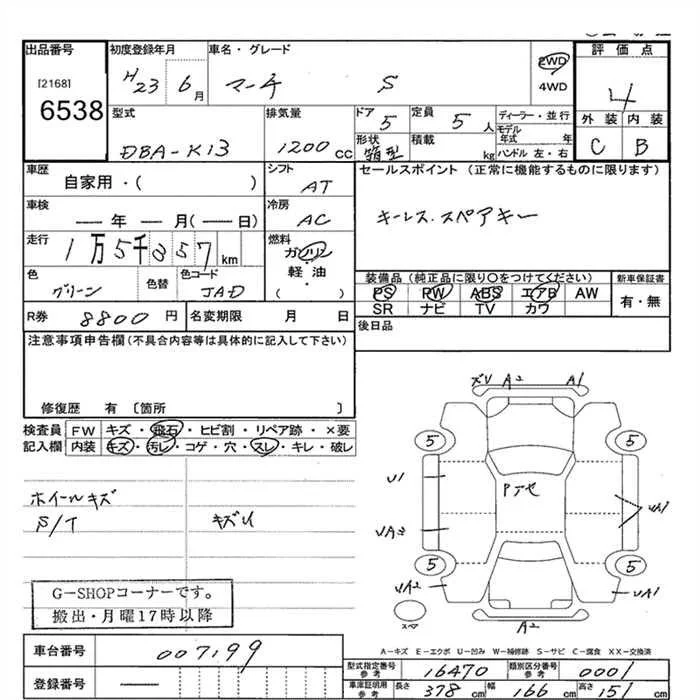 出品番号 初度登録年月 車名・グレード 2WD 評価点
[2168] H23 6月 マーチ S 4WD 4
6538 型式 排気量 ドア 定員 ディーラー・並行 外装 内装
DBA-K13 1200CC 5 5人 モデル年式 年 C B
形状 積載 ハンドル 左・右
箱型 kg
車歴 シフト セールスポイント (正常に機能するものに限ります)
自家用・( ) AT
車検 冷房 キーレス.スペアキー
ー年ー月(ー日) AC
走行 燃料
1万5千 57km ガソリン
色 色替 色コード 軽・油 装備品(純正品に限り○をつけてください) 新車保証書
グリーン JAD ( ) PS PW ABS エアB AW 有・無
SR ナビ TV カワ
R券 8800円 名変期限 月 日 後日品
注意事項申告欄(不具合内容等は具体的に記入して下さい)
修復歴 有 〔箇所 〕
検査員 FW キズ・飛石・ヒビ割・リペア跡・×要
記入欄 内装 キズ・汚レ・コゲ・穴・スレ・キレ・破レ
A2 A1
5 5
U1 Pアセ
ホイールキズ
S/T キズU
5 5
UA2 UA1
G-SHOPコーナーです。
搬出・月曜17時以降
A2
A-キズ E-エクボ U-凹み W-補修跡 S-サビ C-腐食 XX-交換済
車台番号 007199
型式指定番号 参考 16470 類別区分番号 参考 0001
登録番号 ー
車庫証明用 参考 長さ 378cm 幅 166cm 高さ 151cm